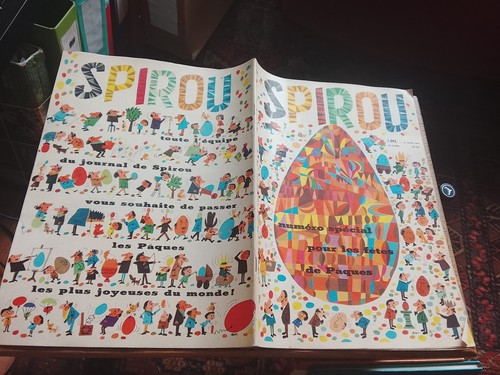 SPIROU
toute l'équipe
du journal de Spirou
vous souhaite de passer
les Pâques
les plus joyeuses du monde!
SPIROU
numéro spécial
pour les fêtes
de Pâques